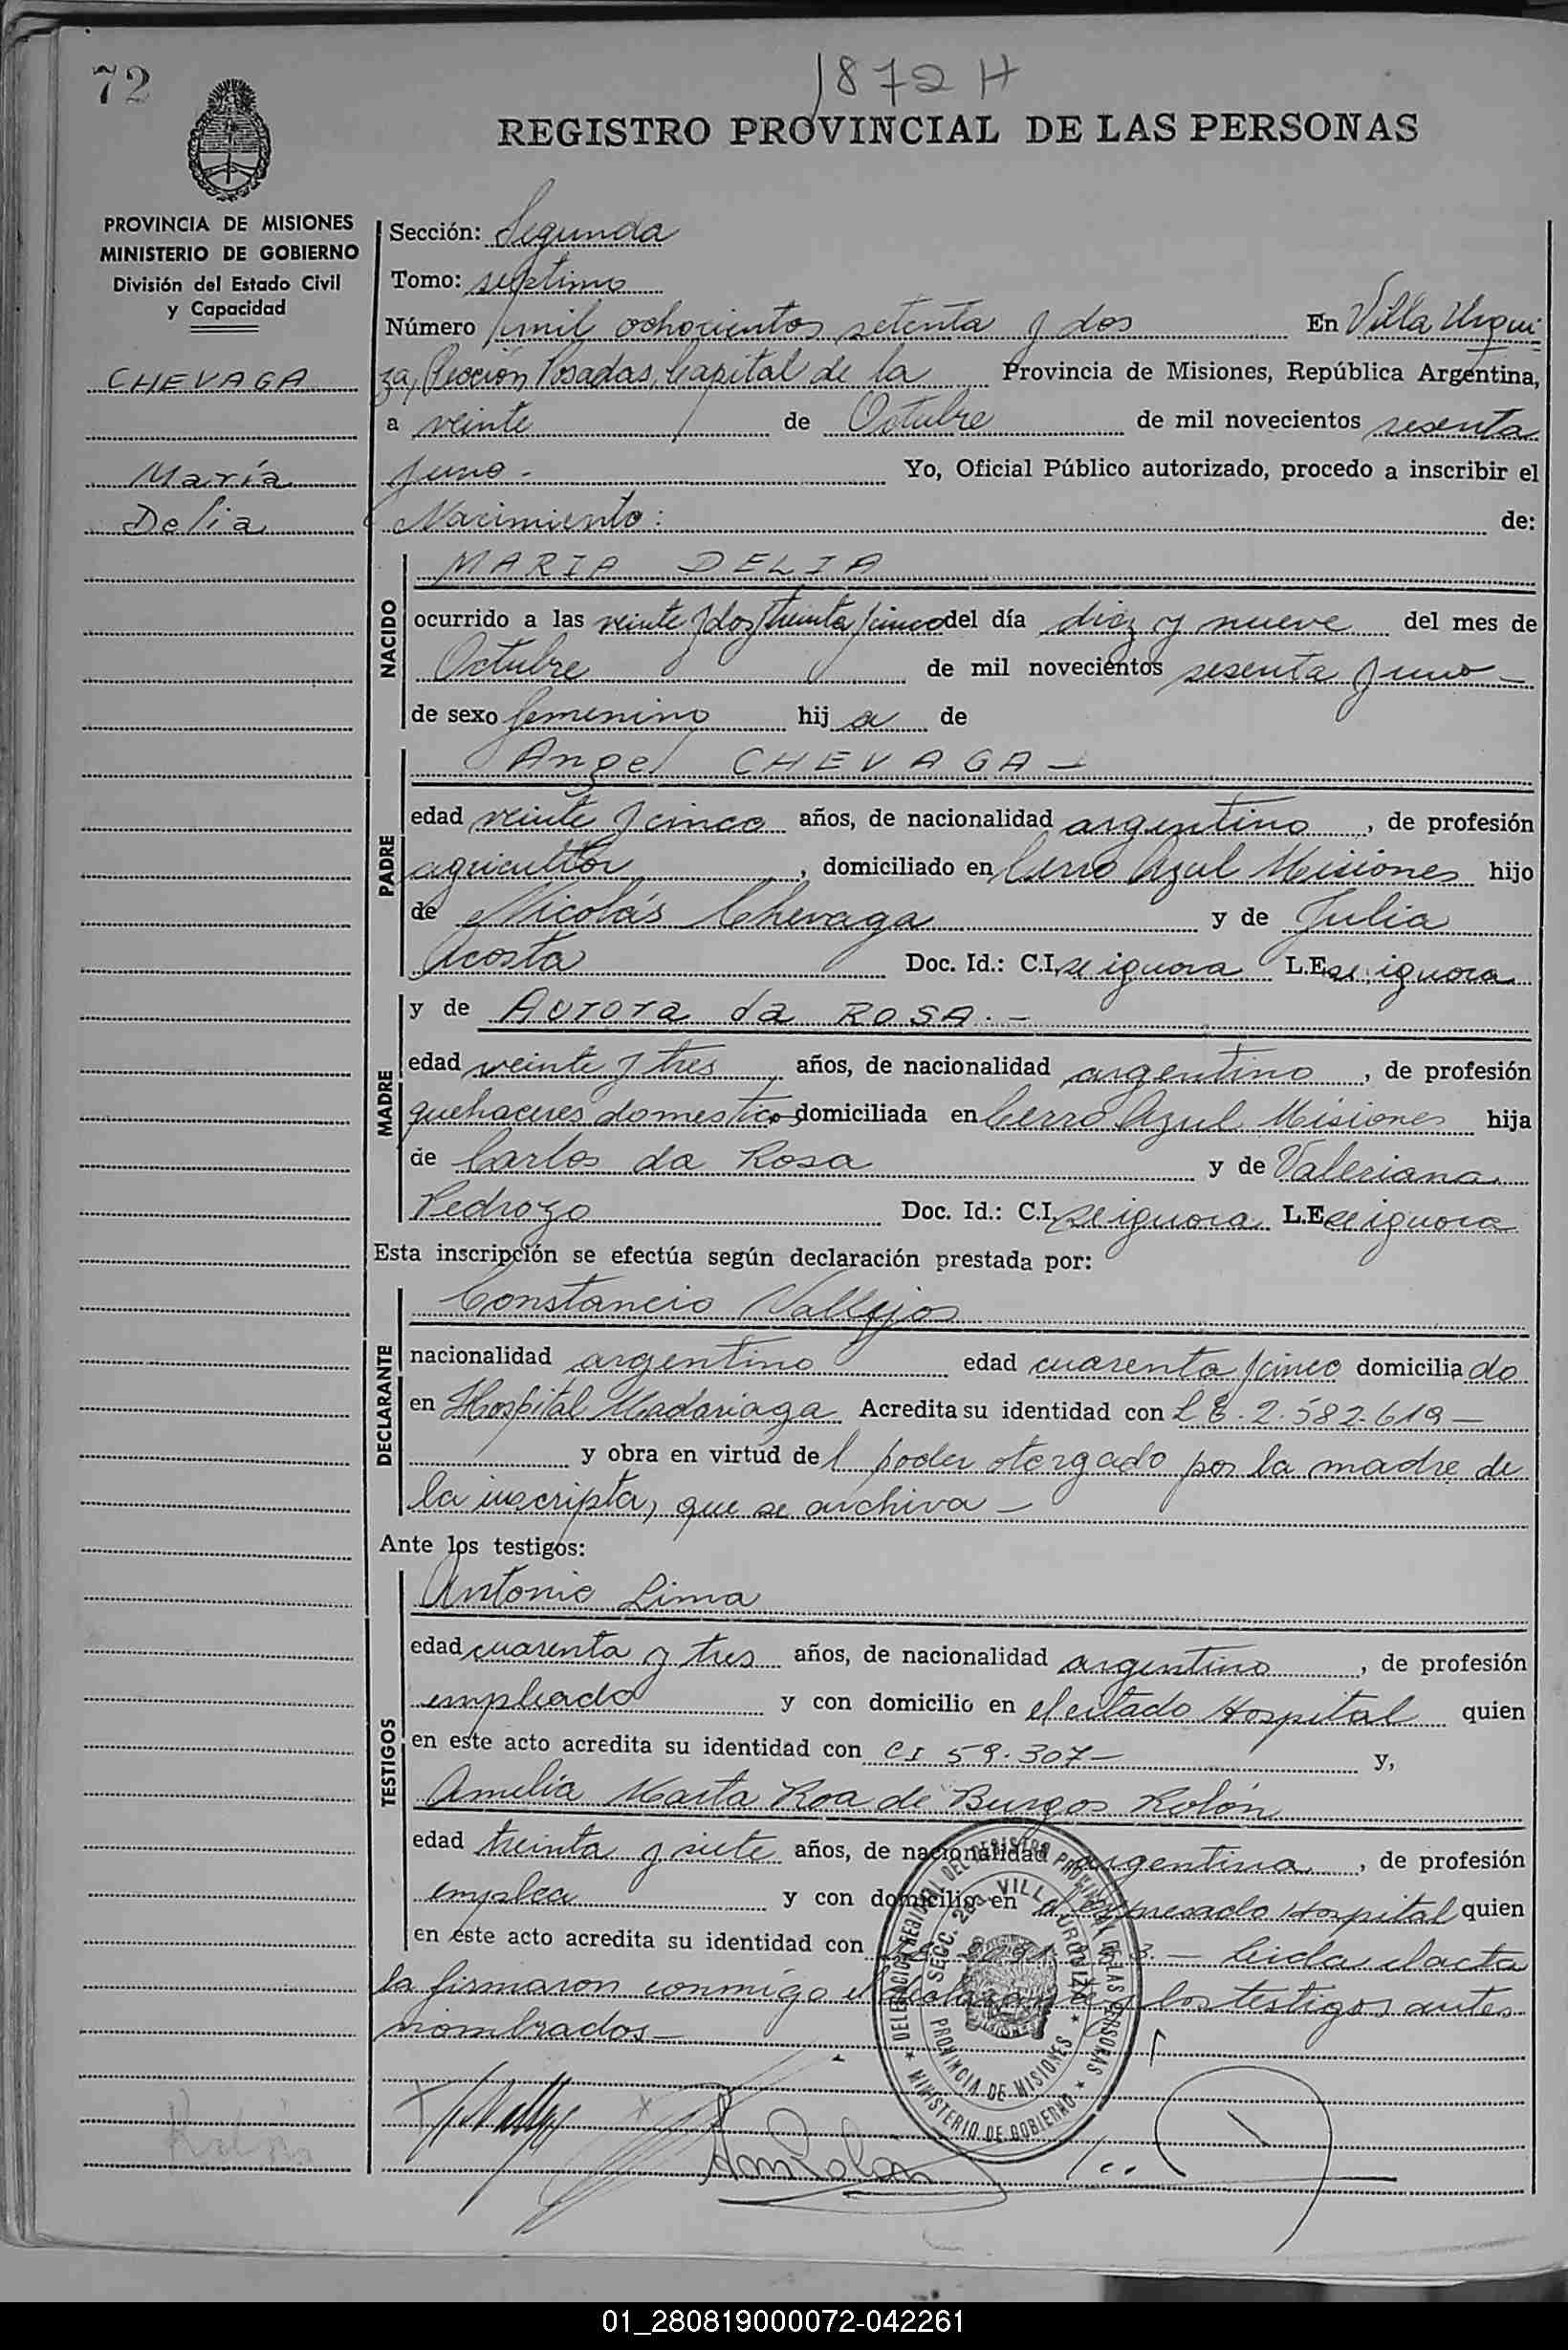 72
1872 H
REGISTRO PROVINCIAL DE LAS PERSONAS
PROVINCIA DE MISIONES
MINISTERIO DE GOBIERNO
División del Estado Civil
y Capacidad
CHEVAGA
María
Delia
Sección: Segunda
Tomo: septimo
Número mil ochocientos setenta y dos En Villa Urqui
za, Sección Posadas, Capital de la Provincia de Misiones, República Argentina,
a veinte de Octubre de mil novecientos sesenta
y uno.- Yo, Oficial Público autorizado, procedo a inscribir el
Nacimiento: de:
NACIDO
MARIA DELIA
ocurrido a las veinte y dos y treinta y cinco del día diez y nueve del mes de
Octubre de mil novecientos sesenta y uno -
de sexo femenino hij a de
PADRE
Angel CHEVAGA -
edad veinte y cinco años, de nacionalidad argentino, de profesión
agricultor, domiciliado en Cerro Azul Misiones hijo
de Nicolás Chevaga y de Julia
Acosta Doc. Id.: C.I. se ignora L.E. se ignora
MADRE
y de Aurora da ROSA.-
edad veinte y tres años, de nacionalidad argentino, de profesión
quehaceres domesticos domiciliada en Cerro Azul Misiones hija
de Carlos da Rosa y de Valeriana
Pedrozo Doc. Id.: C.I. se ignora L.E. se ignora
Esta inscripción se efectúa según declaración prestada por:
DECLARANTE
Constancio Vallejos
nacionalidad argentino edad cuarenta y cinco domicilia do
en Hospital Madariaga Acredita su identidad con L E. 2.582.619 -
y obra en virtud de l poder otorgado por la madre de
la inscripta, que se archiva -
Ante los testigos:
TESTIGOS
Antonio Lima
edad cuarenta y tres años, de nacionalidad argentino, de profesión
empleado y con domicilio en el citado Hospital quien
en este acto acredita su identidad con CI 59.307 - y,
Amelia Marta Roa de Burgos Rolón
edad treinta y siete años, de nacionalidad argentina, de profesión
emplea y con domicilio en el expresado Hospital quien
en este acto acredita su identidad con 3. - Leida el acta
la firmaron conmigo el declarante y los testigos antes
nombrados -
DELEGACION REGIONAL DEL REGISTRO PROVINCIAL DE LAS PERSONAS
MINISTERIO DE GOBIERNO
SECC. 2da. VILLA URQUIZA
PROVINCIA DE MISIONES
Rolón
01_280819000072-042261